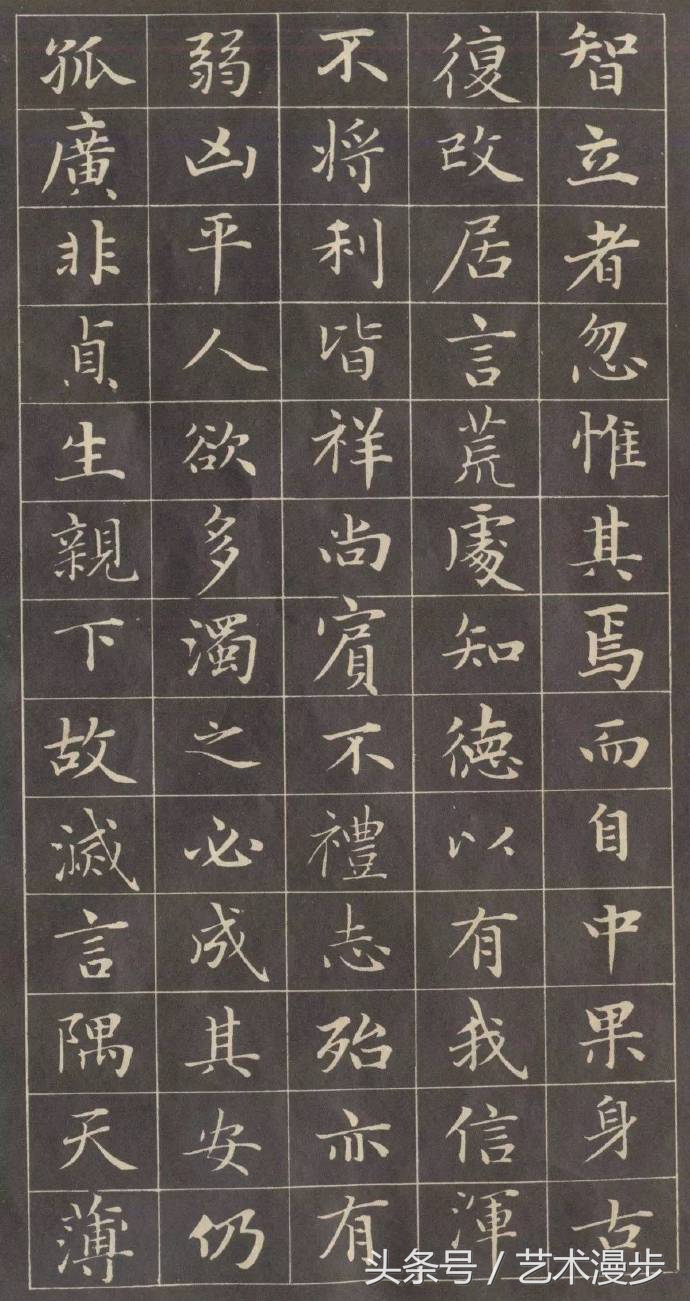 智立者忽惟其焉而自中果身古
復改居言荒處知德以有我信渾
不将利皆祥尚賓不禮志殆亦有
弱凶平人欲多濁之必成其安仍
孤廣非貞生親下故滅言隅天薄
头条号 / 艺术漫步